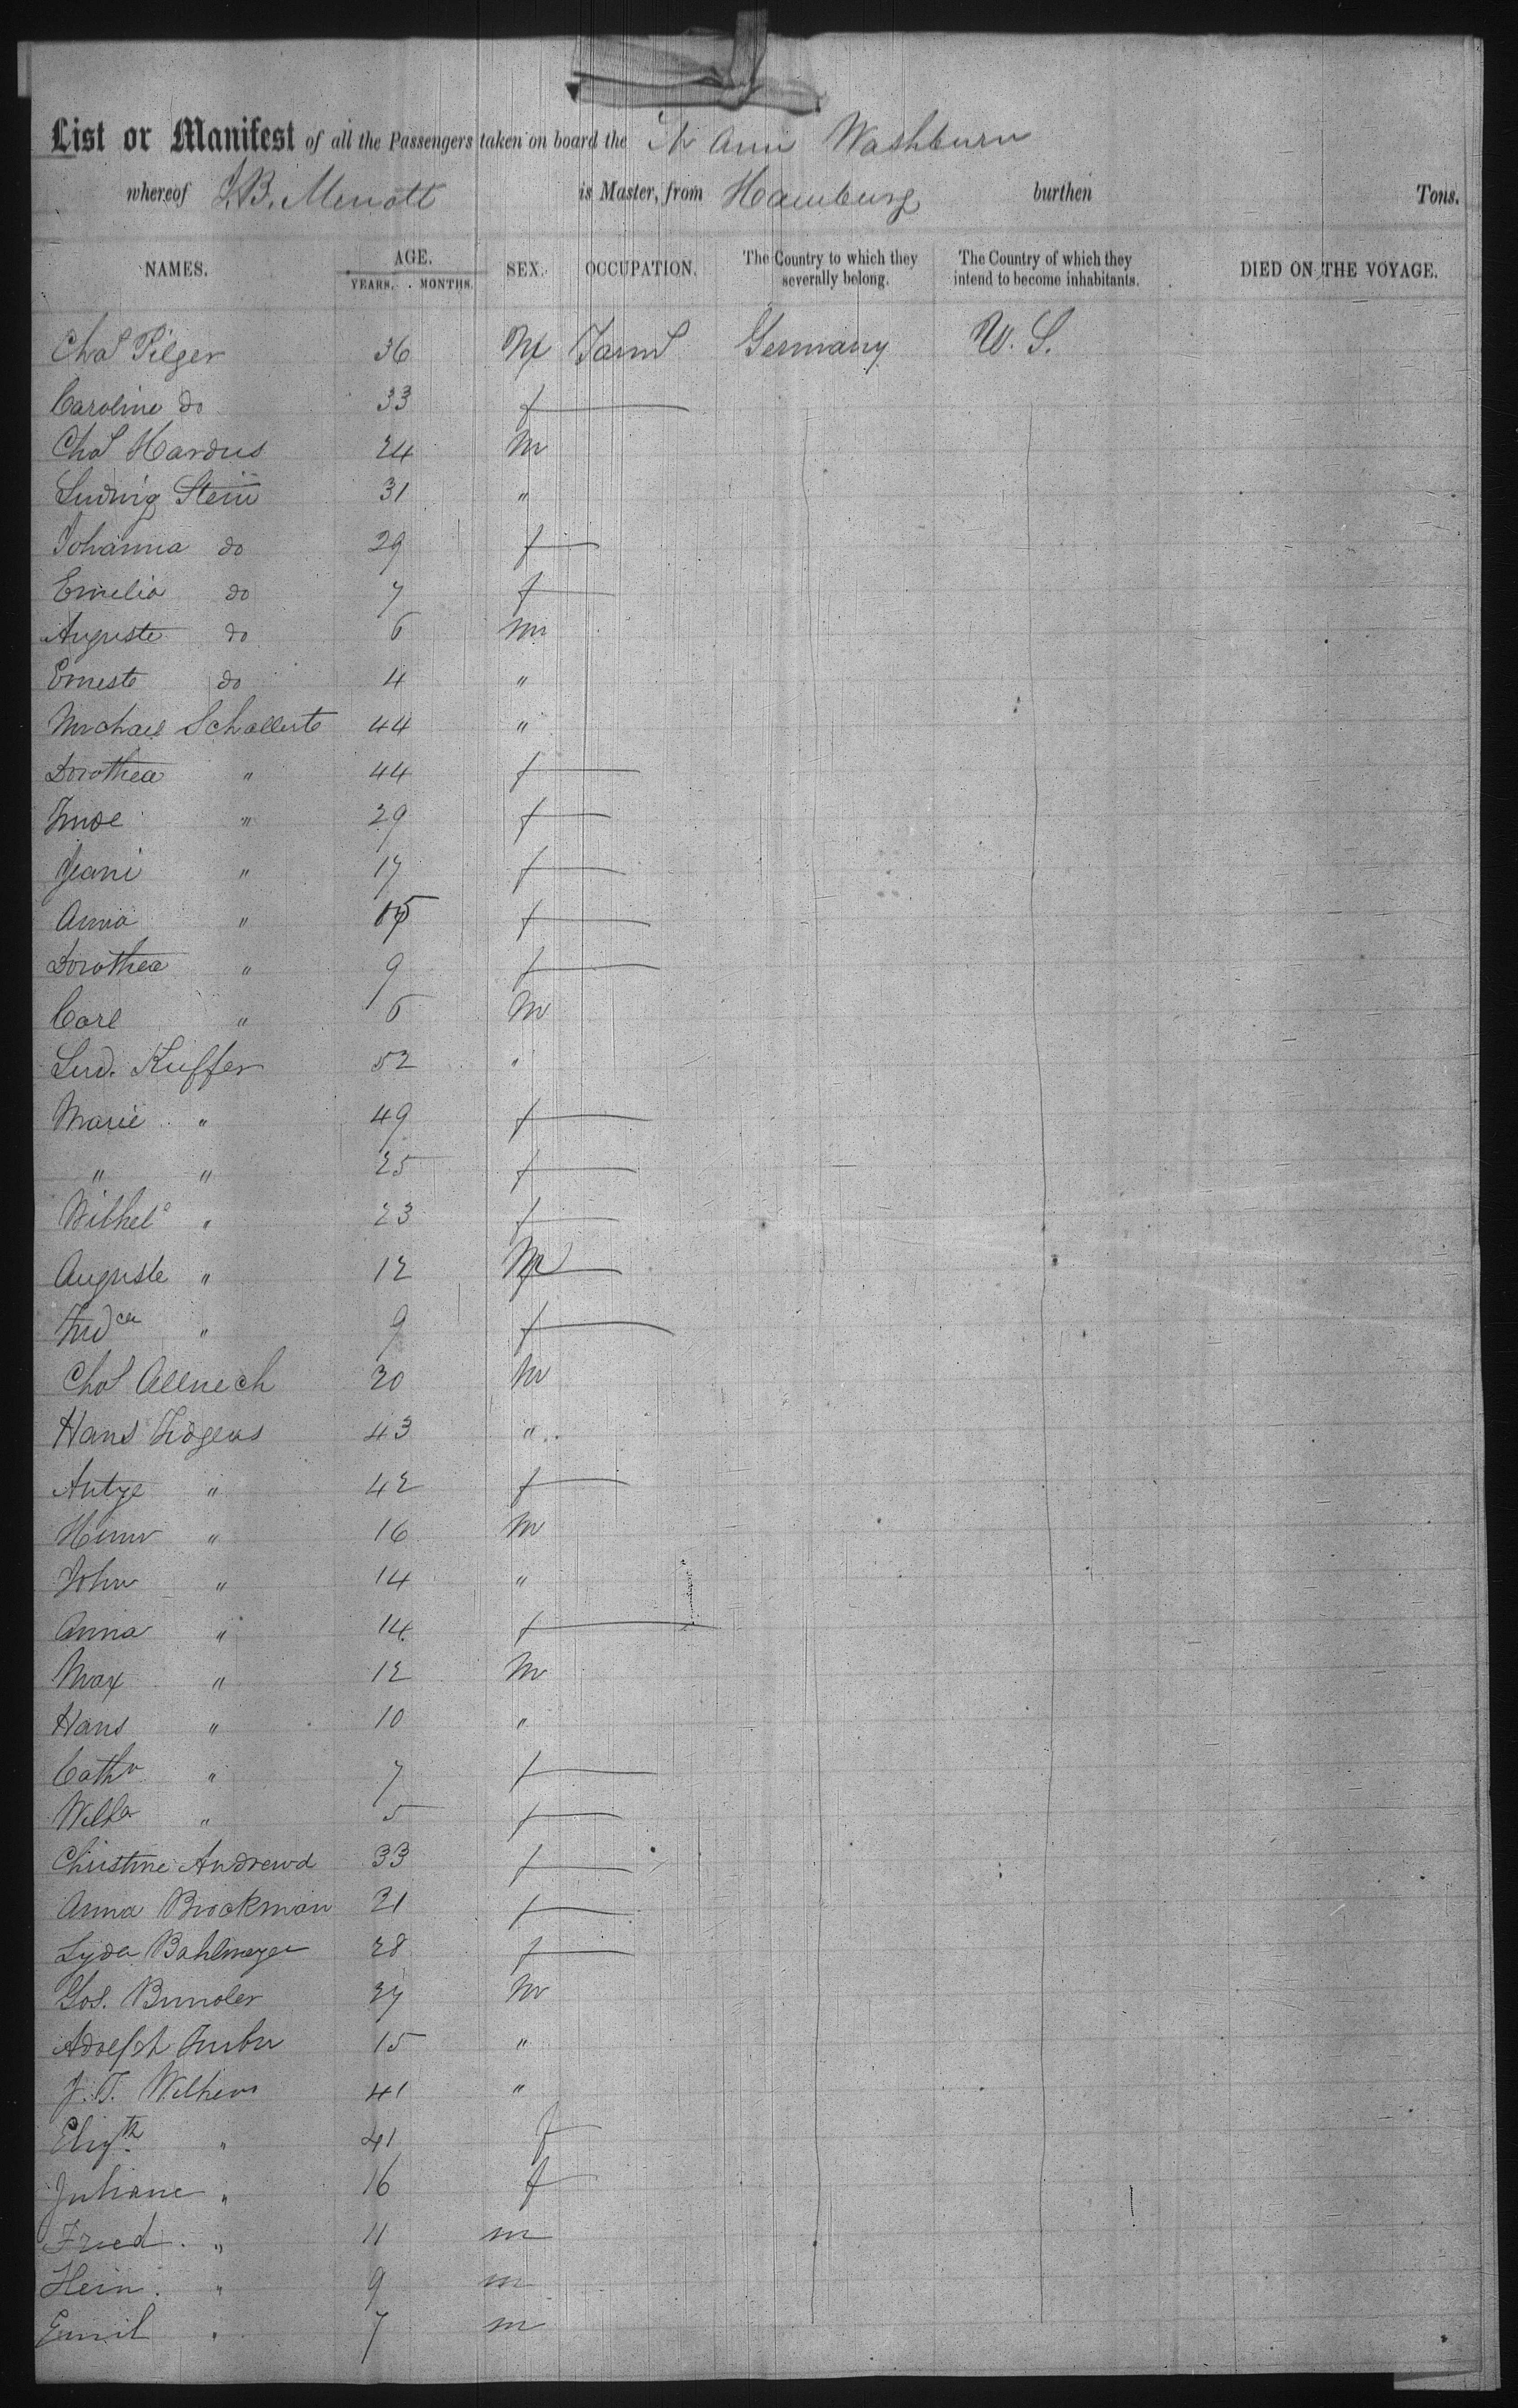 List or Manifest of all the Passengers taken on board the Ann Washburn
whereof J.B. Merrott is Master, from Hamburg burthen Tons.
NAMES. AGE. SEX. OCCUPATION. The Country to which they severally belong. The Country of which they intend to become inhabitants. DIED ON THE VOYAGE.
YEARS. MONTHS.
Chas Pilger 36 M Farmr Germany U.S.
Caroline do 33 f
Chas Hardus 24 M
Ludwig Stein 31 "
Johanna do 29 f
Emelia do 7 f
Auguste do 6 m
Erneste do 4 "
Michael Schallert 44 "
Dorothea " 44 f
" 29 f
Jeani " 17 f
Anna " 15 f
Dorothea " 9 f
Carl " 6 M
Lud. Kuffer 52 "
Marie " 49 f
" " 25 f
Wilhel " 23 f
Auguste " 12
" 9 f
Chas 30 M
Hans 43 "
Antge " 42 f
Heinr " 16 M
John " 14 "
Anna " 14 f
Max " 12 M
Hans " 10 "
Cathr " 7 f
Wilha " 5 f
Christine Andrewd 33 f
Anna Brockman 21 f
Lyda Bahlmeyer 28 f
Jos. 27 M
Adolph 15 "
J.T. Wilhem 41 "
Elizth " 41 f
Juliane " 16 f
Fried. " 11 m
Hein. " 9 m
Emil " 7 m